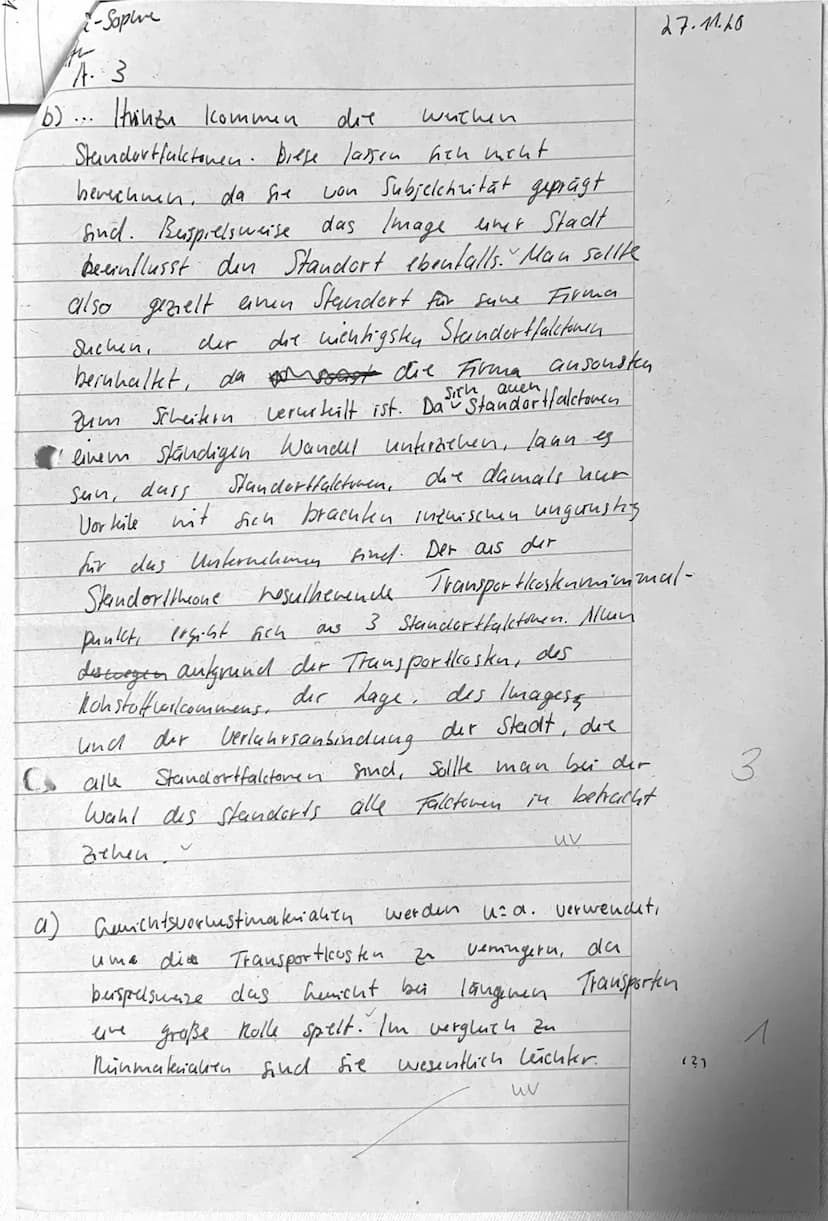 -Sophie
27.11.20
A. 3
b) ... Hinzu kommen die weichen
Standortfaktoren. Diese lassen sich nicht
berechnen, da sie von Subjektivität geprägt
sind. Beispielsweise das Image einer Stadt
beeinflusst den Standort ebenfalls. Man sollte
also gezielt einen Standort für seine Firma
suchen, der die wichtigsten Standortfaktoren
beinhaltet, da die Firma ansonsten
zum Scheitern verurteilt ist. Da sich auch Standortfaktoren
einem ständigen Wandel unterziehen, kann es
sein, dass Standortfaktoren, die damals nur
Vorteile mit sich brachten inzwischen ungünstig
für das Unternehmen sind. Der aus der
Standorttheorie resultierende Transportkostenminimal-
punkt, ergibt sich aus 3 Standortfaktoren. Allein
deswegen aufgrund der Transportkosten, des
Rohstoffvorkommens, der Lage, des Images
und der Verkehrsanbindung der Stadt, die
alle Standortfaktoren sind, sollte man bei der
Wahl des Standorts alle Faktoren in betracht
ziehen.
3
uv
a) Gewichtsverlustmaterialien werden u.a. verwendet,
um die Transportkosten zu verringern, da
beispielsweise das Gewicht bei längeren Transporten
eine große Rolle spielt. Im vergleich zu
Reinmaterialien sind sie wesentlich leichter.
1
(?)
uv